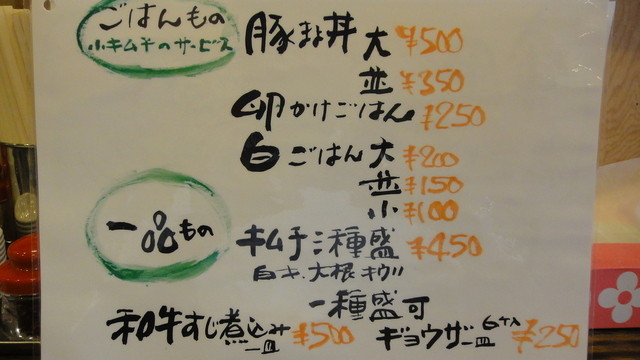 ごはんもの
小キムチのサービス
豚まよ丼 大 ¥500
並 ¥350
卵かけごはん ¥250
白ごはん 大 ¥200
並 ¥150
小 ¥100
一品もの
キムチ三種盛 ¥450
白キ、大根、キウリ
一種盛可
和牛すじ煮込み一皿 ¥500
ギョウザ一皿 6ケ入 ¥250